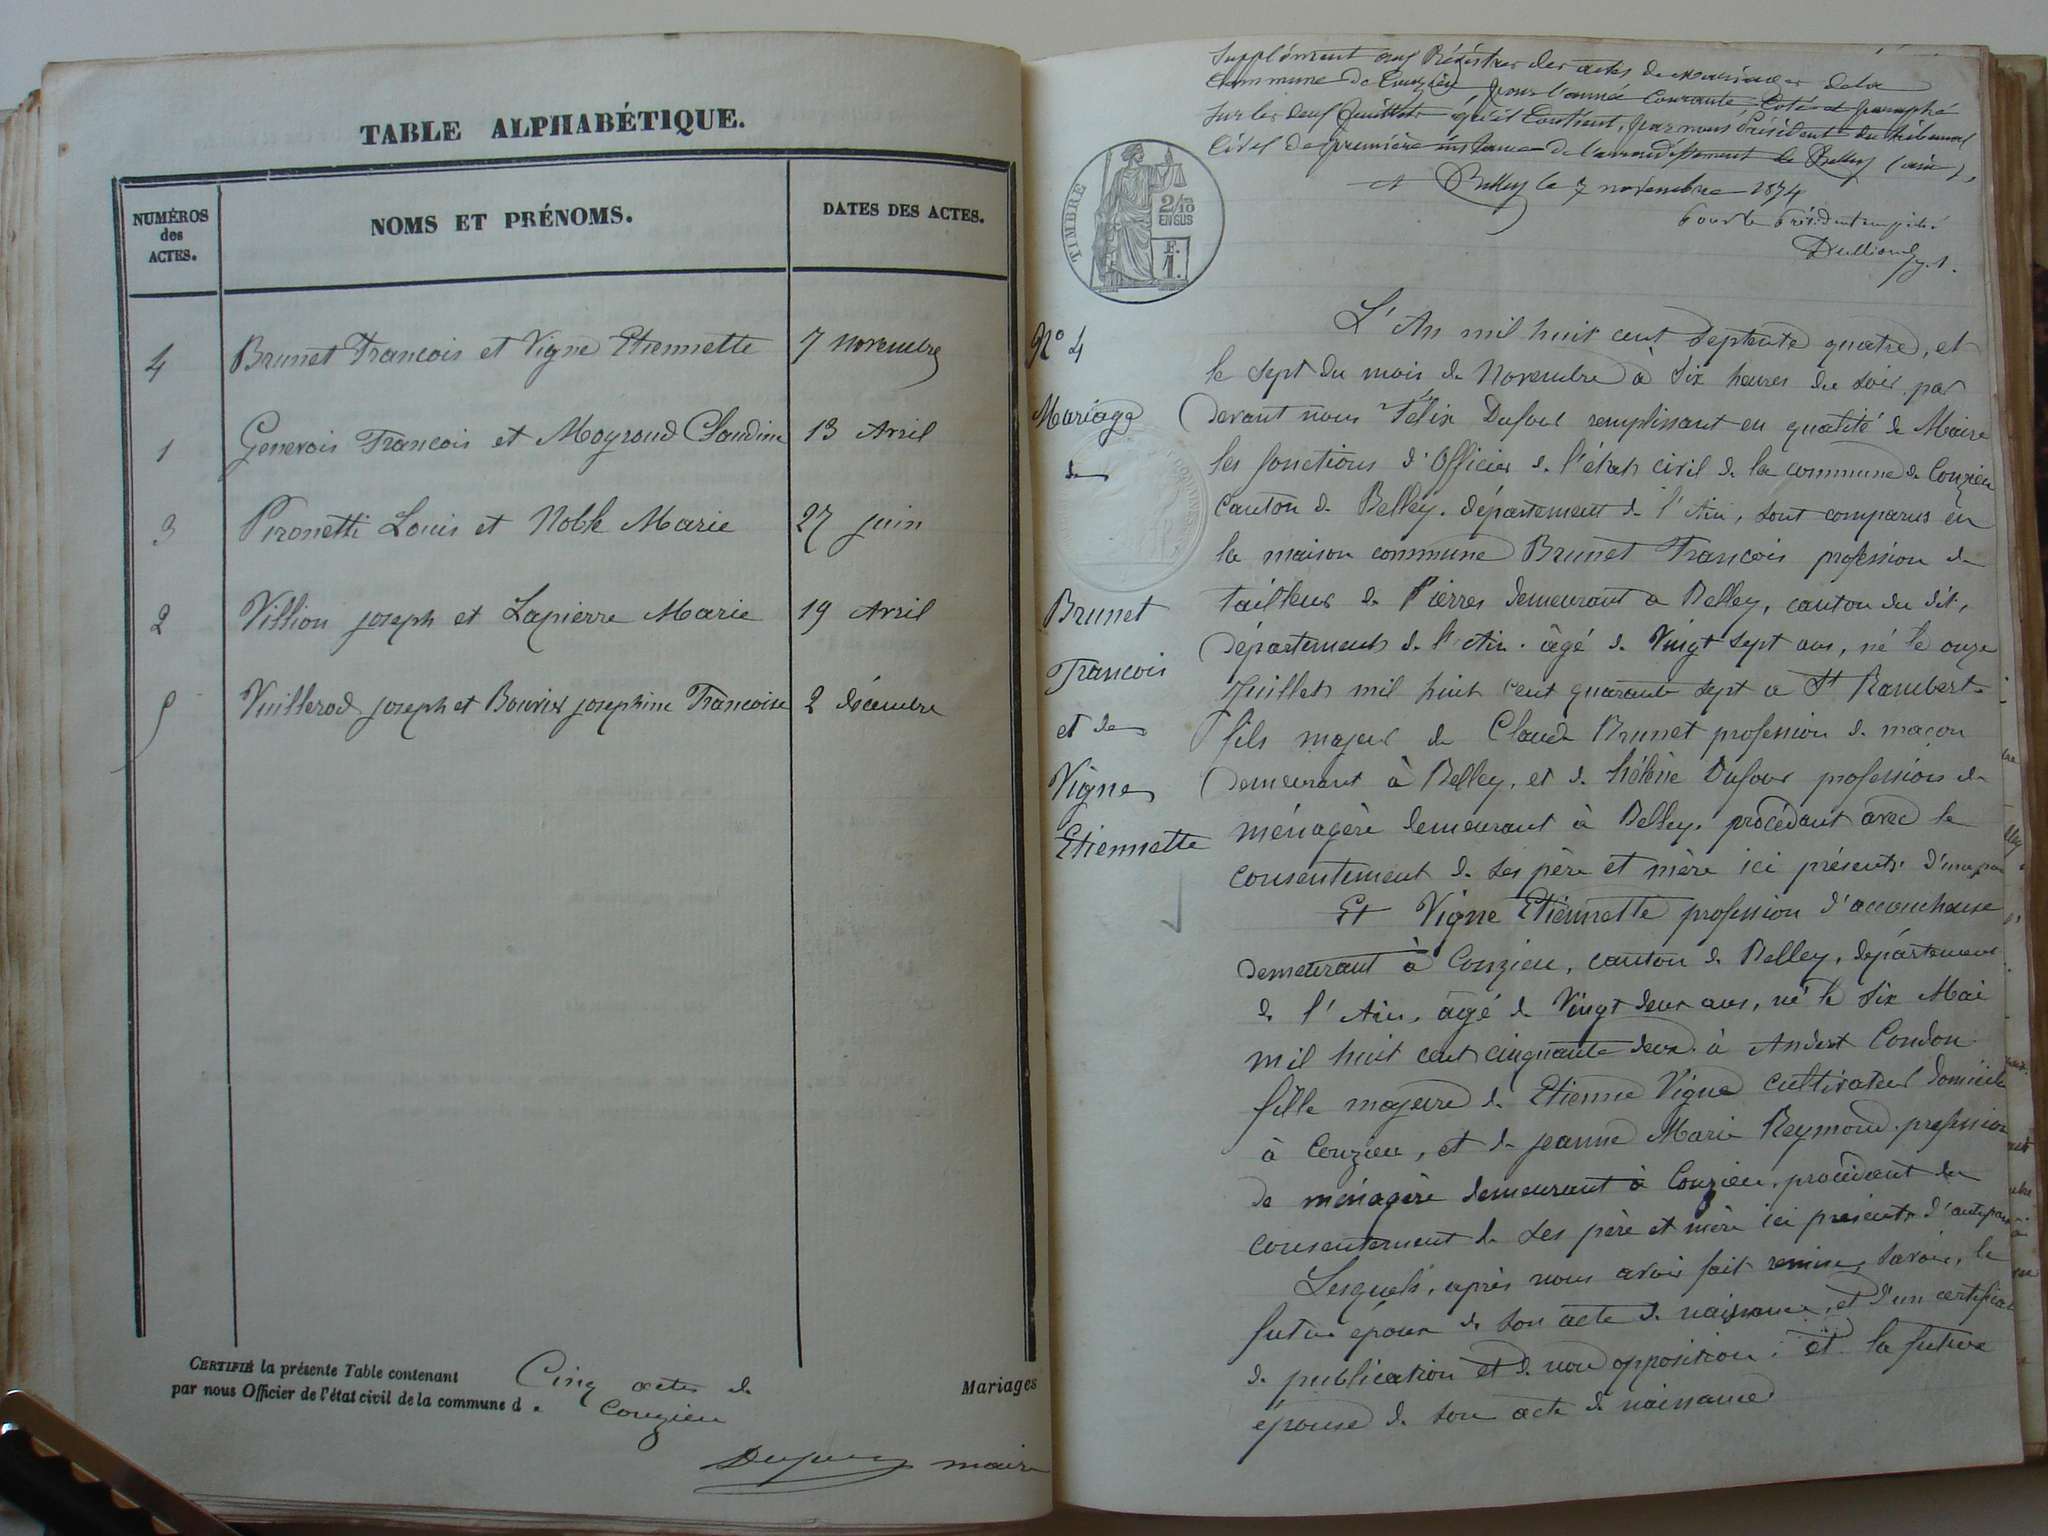 TABLE ALPHABÉTIQUE.
NUMÉROS des ACTES.
NOMS ET PRÉNOMS.
DATES DES ACTES.
4 Brunet Francois et Vigne Etiennette 7 Novembre
1 Genevois Francois et Moyroud Claudine 13 Avril
3 Pironetti Louis et Noble Marie 27 juin
2 Villion joseph et Lapierre Marie 19 Avril
5 Vuillerod joseph et Bouvier josephine Francoise 2 décembre
CERTIFIÉ la présente Table contenant Cinq actes de Mariages
par nous Officier de l'état civil de la commune d. Couzieu
maire
Supplément aux Régistres des actes de mariages de la
Commune de Couzieu, pour l'année courante, Coté et paraphé
sur les deux feuillets qu'il Contient, par nous Président du tribunal
Civil de première instance de l'arrondissement de Belley (ain),
Belley le 7 novembre 1874
Pour le Président empêché
TIMBRE
2/10 EN SUS
F. 1.
No 4
Mariage
de
Brunet
Francois
et de
Vigne
Etiennette
L'An mil huit cent septente quatre, et
le sept du mois de Novembre à six heures du soir par
devant nous Félix Dufour remplissant en qualité de Maire
les fonctions d'Officier de l'état civil de la commune de Couzieu
canton de Belley, département de l'Ain, sont comparus en
la maison commune Brunet Francois profession de
tailleur de Pierres demeurant a Belley, canton du dit,
département de l'Ain. âgé de Vingt sept ans, né le onze
Juillet mil huit cent quarante sept a St Rambert
fils majeur de Claude Brunet profession de maçon
demeurant à Belley, et de hélène Dufour profession de
ménagère demeurant à Belley. procédant avec le
consentement de ses père et mère ici présents. d'une part
Et Vigne Etiennette profession d'accoucheuse
demeurant à Couzieu, canton de Belley, département
de l'Ain, âgé de Vingt deux ans, né le six Mai
mil huit cent cinquante deux à Andert Condon
fille majeure de Etienne Vigne cultivateur domicilié
à Couzieu, et de jeanne Marie Reymond. profession
de ménagère demeurant à Couzieu, procédant du
consentement de ses père et mère ici présents d'autre part
Lesquels, après nous avoir fait remise, savoir, le
futur époux de son acte de naissance, et d'un certificat
de publication et de non opposition. et la future
épouse de son acte de naissance